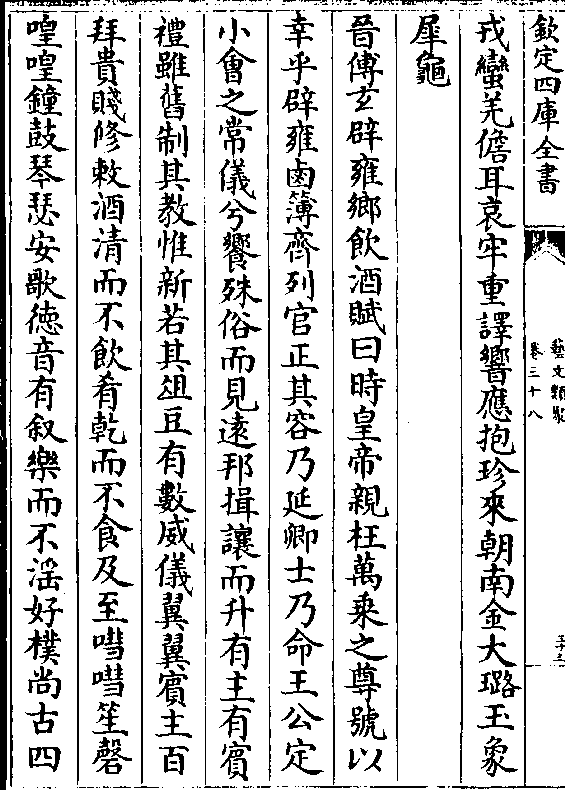 欽定四庫全書
藝文類聚
卷三十八
戎蠻羌儋耳哀牢重譯響應抱珍來朝南金大璐玉象
犀龜
晉傅玄辟雍鄉飲酒賦曰時皇帝親枉萬乘之尊號以
幸乎辟雍鹵簿齊列官正其容乃延卿士乃命王公定
小會之常儀兮饗殊俗而見遠邦揖讓而升有主有賓
禮雖舊制其教惟新若其俎豆有數威儀翼翼賓主百
拜貴賤修敕酒清而不飲肴乾而不食及至嘒嘒笙磬
喤喤鐘鼓琴瑟安歌德音有叙樂而不淫好樸尚古四